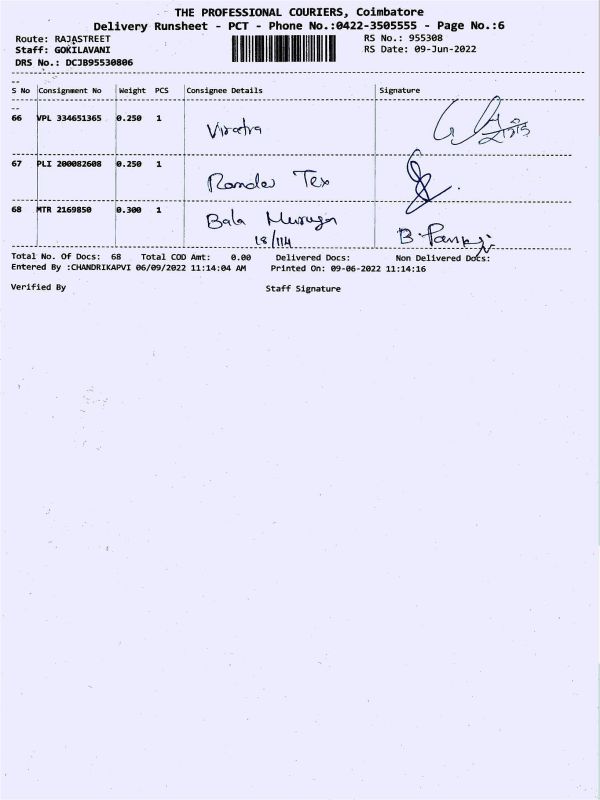 THE PROFESSIONAL COURIERS, Coimbatore
Delivery Runsheet - PCT - Phone No.:0422-3505555 - Page No.:6
Route: RAJASTREET RS No.: 955308
Staff: GOKILAVANI RS Date: 09-Jun-2022
DRS No.: DCJB95530806
S No Consignment No Weight PCS Consignee Details Signature
66 VPL 334651365 0.250 1
67 PLI 200082608 0.250 1 Tex
68 MTR 2169850 0.300 1 Bala Murugan
18/114
Total No. Of Docs: 68 Total COD Amt: 0.00 Delivered Docs: Non Delivered Docs:
Entered By :CHANDRIKAPVI 06/09/2022 11:14:04 AM Printed On: 09-06-2022 11:14:16
Verified By Staff Signature